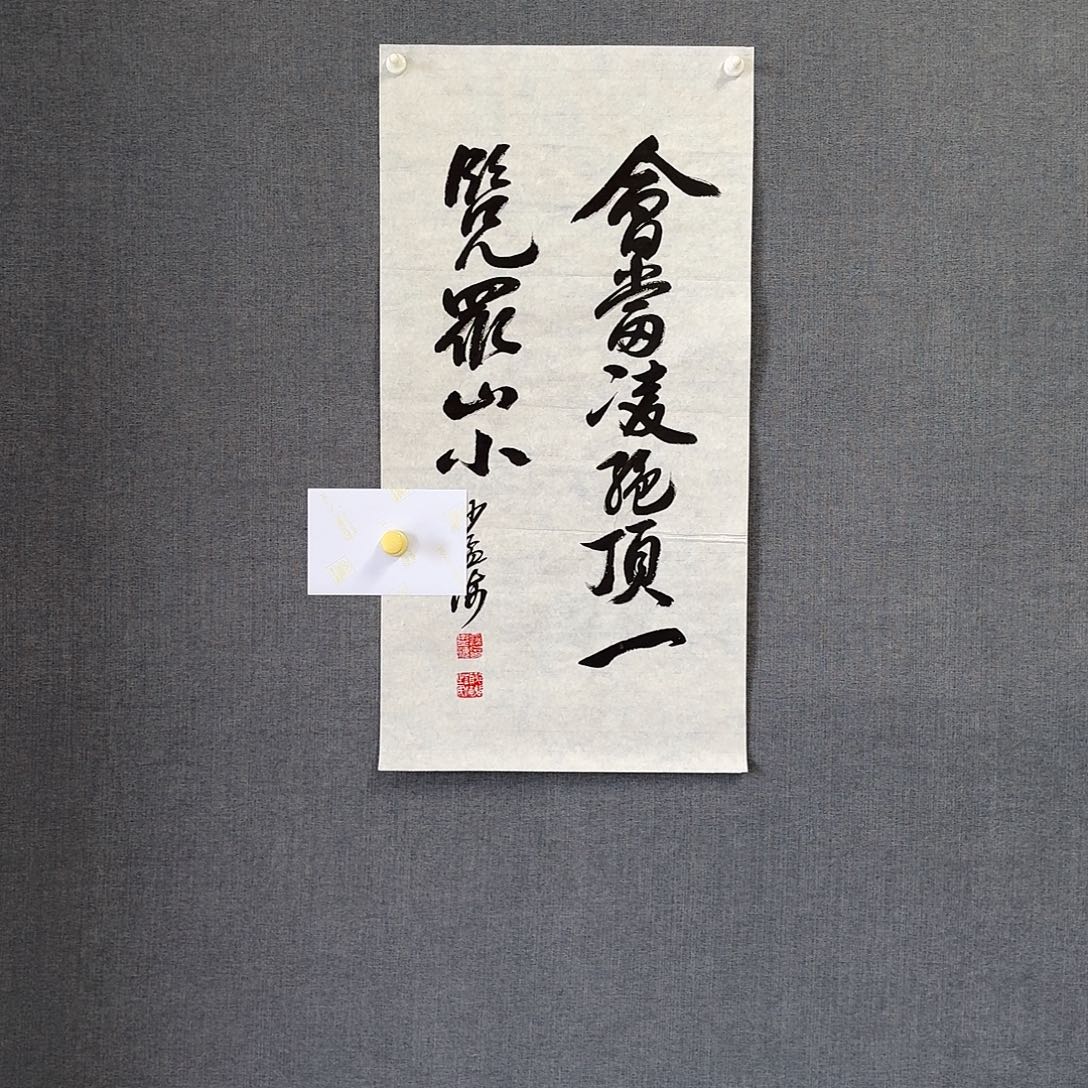 會當凌絕頂一
覽眾山小
沙孟海